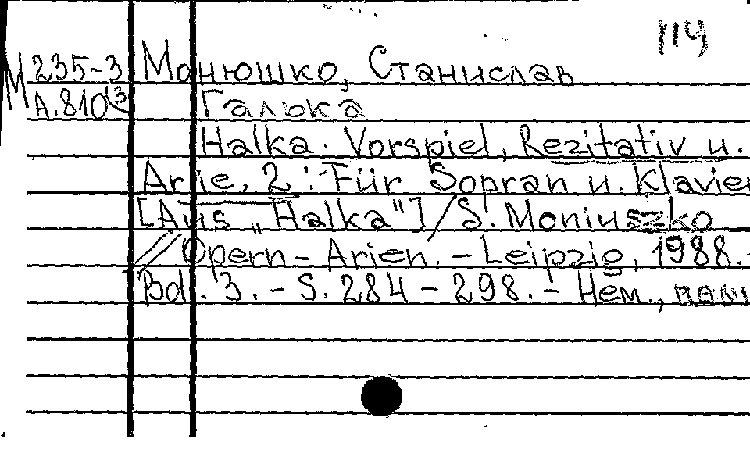 114
М 235-3 Монюшко, Станислав
А.810(3 Галька
Halka. Vorspiel, Rezitativ u.
Arie, 2 : Für Sopran u. Klavier
[Aus „Halka"] / S. Moniuszko
// Opern - Arien. - Leipzig, 1988. -
Bd. 3. - S. 284 - 298. - Нем.,